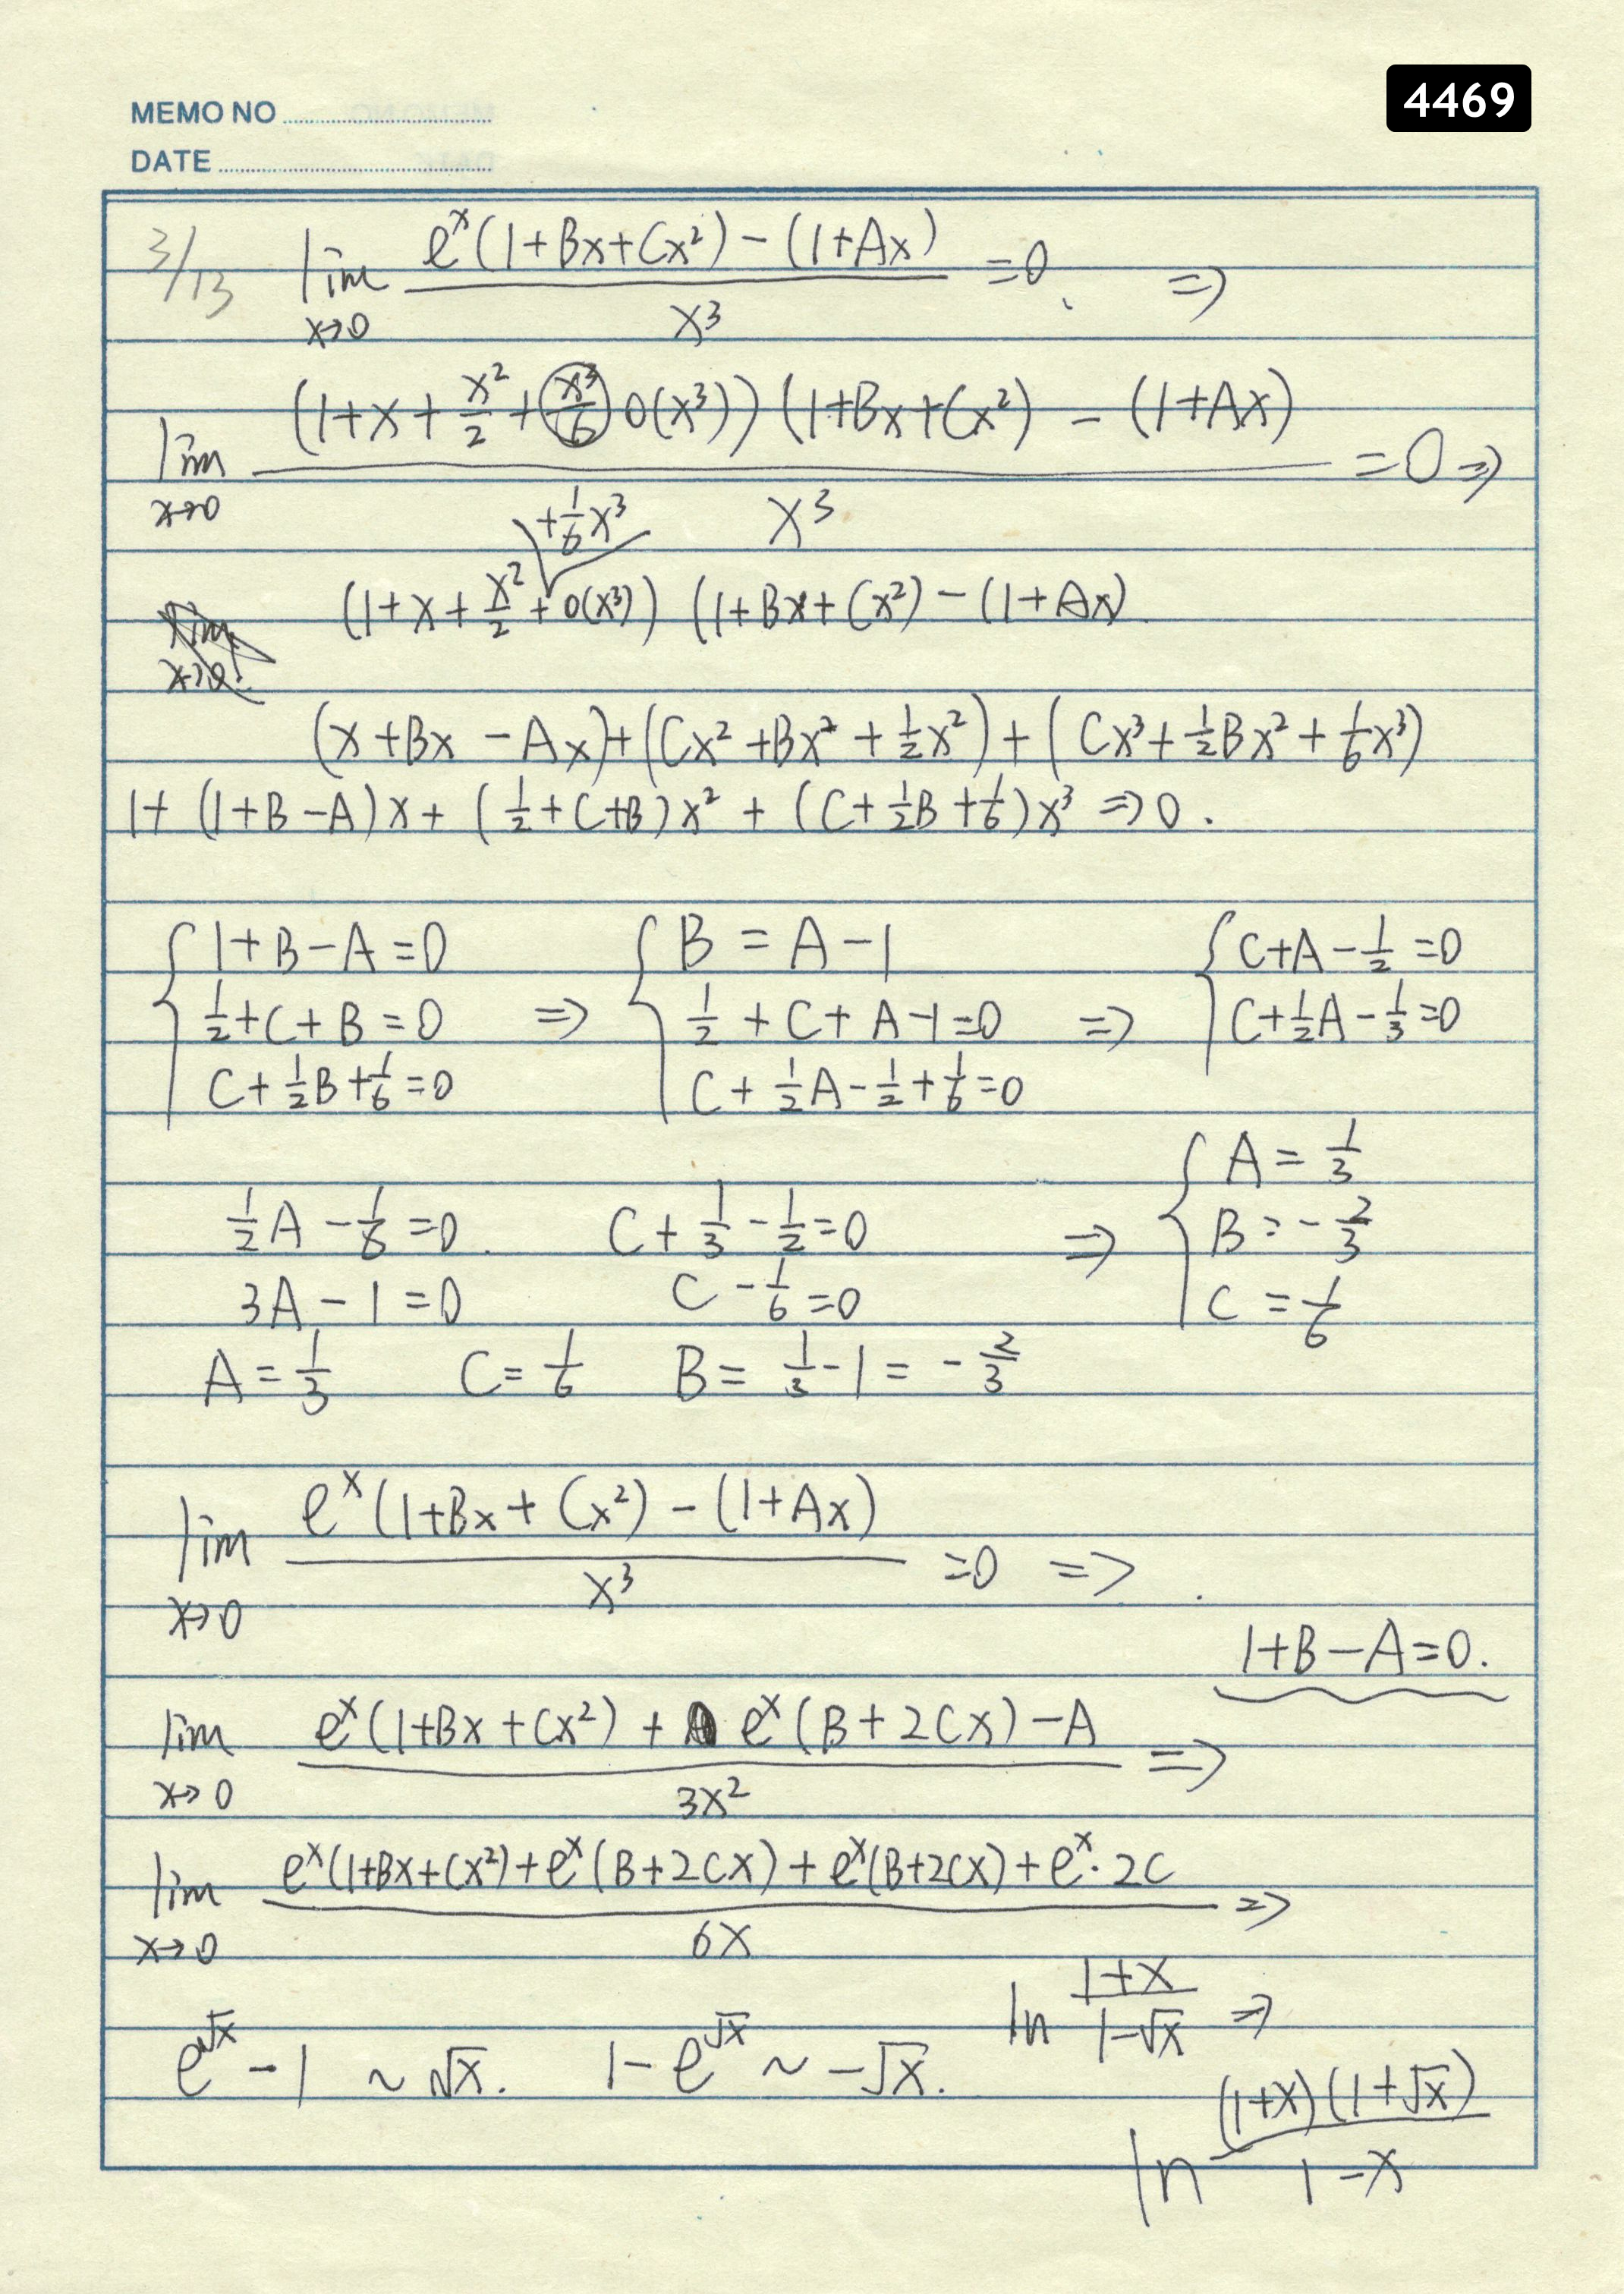 4469
MEMO NO
DATE
3/13 lim x→0 e^x(1+Bx+Cx²)-(1+Ax) / x³ =0. ⇒
lim x→0 (1+x+x²/2+x³/6 0(x³))(1+Bx+Cx²)-(1+Ax) / x³ =0 ⇒
+1/6x³
(1+x+x²/2+0(x³)) (1+Bx+Cx²)-(1+Ax)
(x+Bx-Ax)+(Cx²+Bx²+1/2x²)+(Cx³+1/2Bx²+1/6x³)
1+(1+B-A)x+(1/2+C+B)x²+(C+1/2B+1/6)x³ ⇒0.
{ 1+B-A=0 { B=A-1 { C+A-1/2=0
1/2+C+B=0 ⇒ 1/2+C+A-1=0 ⇒ C+1/2A-1/3=0
C+1/2B+1/6=0 C+1/2A-1/2+1/6=0
{ A=1/3
1/2A-1/6=0. C+1/3-1/2=0 ⇒ B=-2/3
3A-1=0 C-1/6=0 C=1/6
A=1/3 C=1/6 B=1/3-1=-2/3
lim x→0 e^x(1+Bx+Cx²)-(1+Ax) / x³ =0 ⇒.
1+B-A=0.
lim x→0 e^x(1+Bx+Cx²)+e^x(B+2Cx)-A / 3x² ⇒
lim x→0 e^x(1+Bx+Cx²)+e^x(B+2Cx)+e^x(B+2Cx)+e^x·2C / 6x ⇒
ln 1+x / 1-√x ⇒
e^√x-1~√x. 1-e^√x~-√x.
ln (1+x)(1+√x) / 1-x